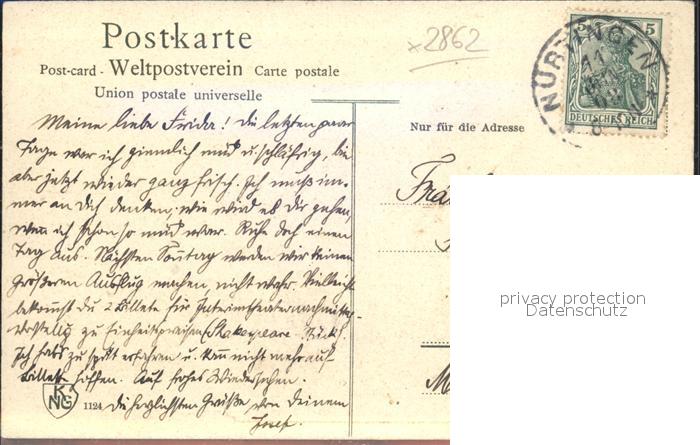 Postkarte
Post-card - Weltpostverein Carte postale
Union postale universelle
x2862
NÜRTINGEN
5 5
DEUTSCHES REICH
Nur für die Adresse
Meine liebe Frieda! Die letzten paar
Tage war ich ziemlich müd u. schläfrig, bin
aber jetzt wieder ganz frisch. Ich muß im-
mer an dich denken, wie wird es dir gehen,
wenn ich schon so müd war. Ruhe doch einen
Tag aus. Nächsten Sonntag werden wir keinen
größeren Ausflug machen, nicht wahr. Vielleicht
bekommst du 2 Billete für Interimtheaternachmittags-
vorstellg zu Einheitspreisen (Shakespeare Stück).
Ich habs zu spät erfahren u. kann nicht mehr auf
Billete hoffen. Auf frohes Wiedersehen.
die herzlichsten Grüße von deinem
Josef.
KNG
1124
privacy protection
Datenschutz